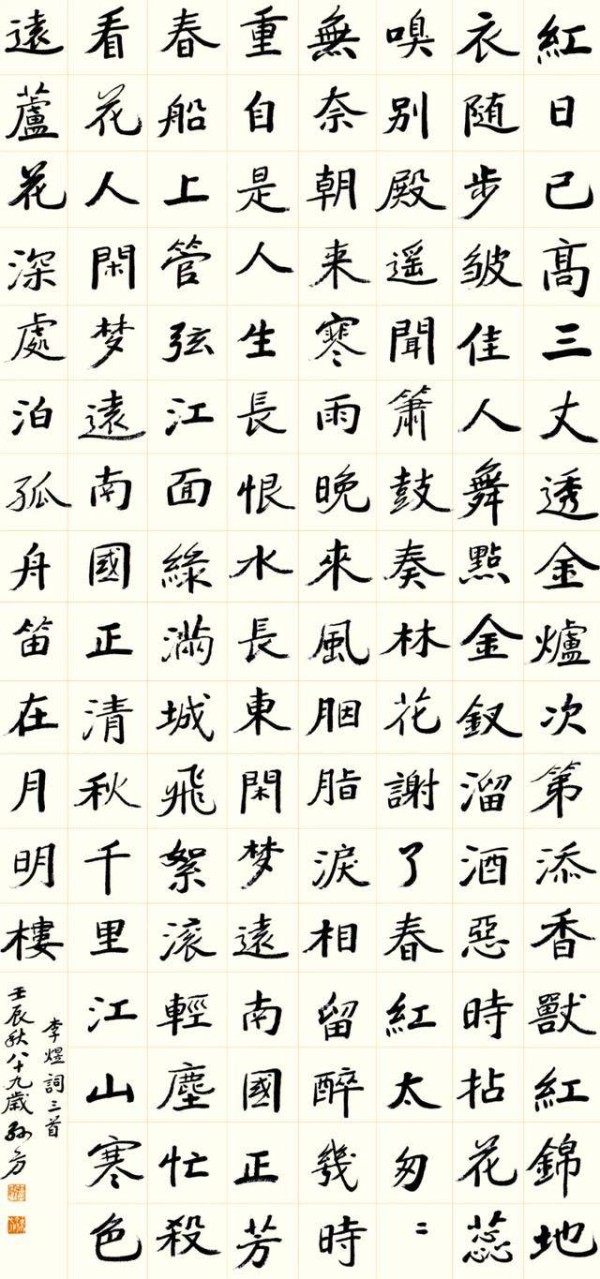 紅日已高三丈透金爐次第添香獸紅錦地
衣随步皱佳人舞點金釵溜酒惡時拈花蕊
嗅别殿遥聞簫鼓奏林花謝了春紅太匆〻
無奈朝来寒雨晚來風胭脂淚相留醉幾時
重自是人生長恨水長東閑梦遠南國正芳
春船上管弦江面綠滿城飛絮滚輕塵忙殺
看花人閑梦遠南國正清秋千里江山寒色
遠蘆花深處泊孤舟笛在月明樓
李煜詞三首
壬辰秋八十九歲孙方